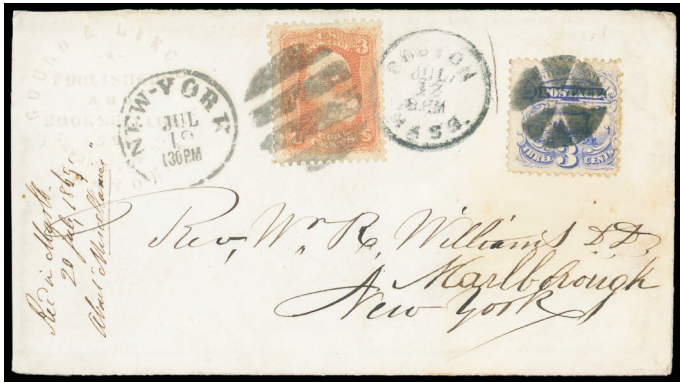 GOULD & LINC
PUBLISH
BOOKSE
NEW-YORK
JUL
1.30PM
U S
3
BOSTON
JUL.
12
8 PM
MASS.
U.S.
POSTAGE
THREE 3 CENTS
Rec'd in Marlb.
20 July 1869
About Miscellanies
Rev. Wm. R. Williams D.D.
Marlborough
New York